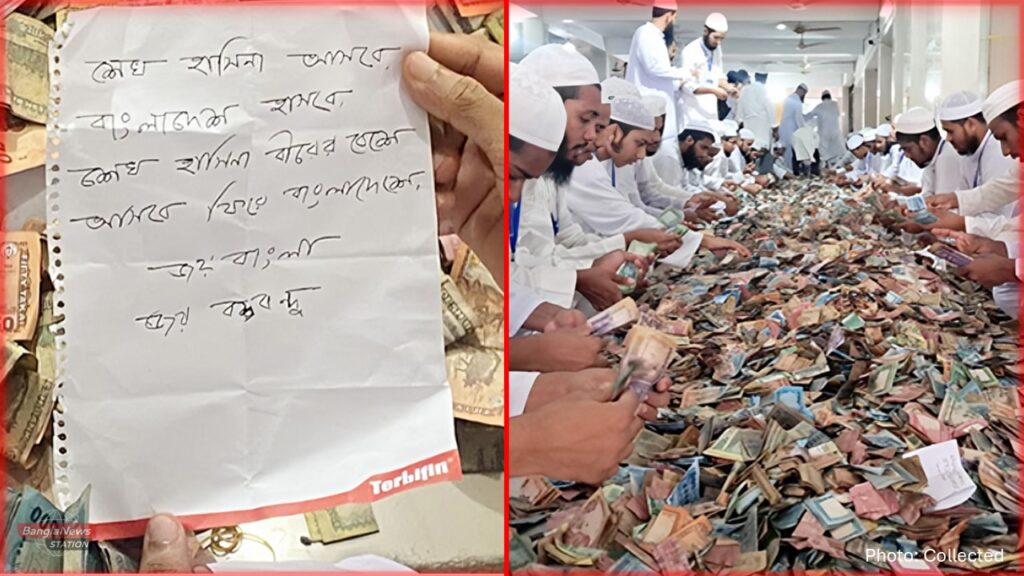 শেখ হাসিনা আসবে,
বাংলাদেশ হাসবে,
শেখ হাসিনা বীরের বেশে
আসবে ফিরে বাংলাদেশে,
জয় বাংলা
জয় বঙ্গবন্ধু
Terbifin
BanglaNews
STATION
Photo: Collected